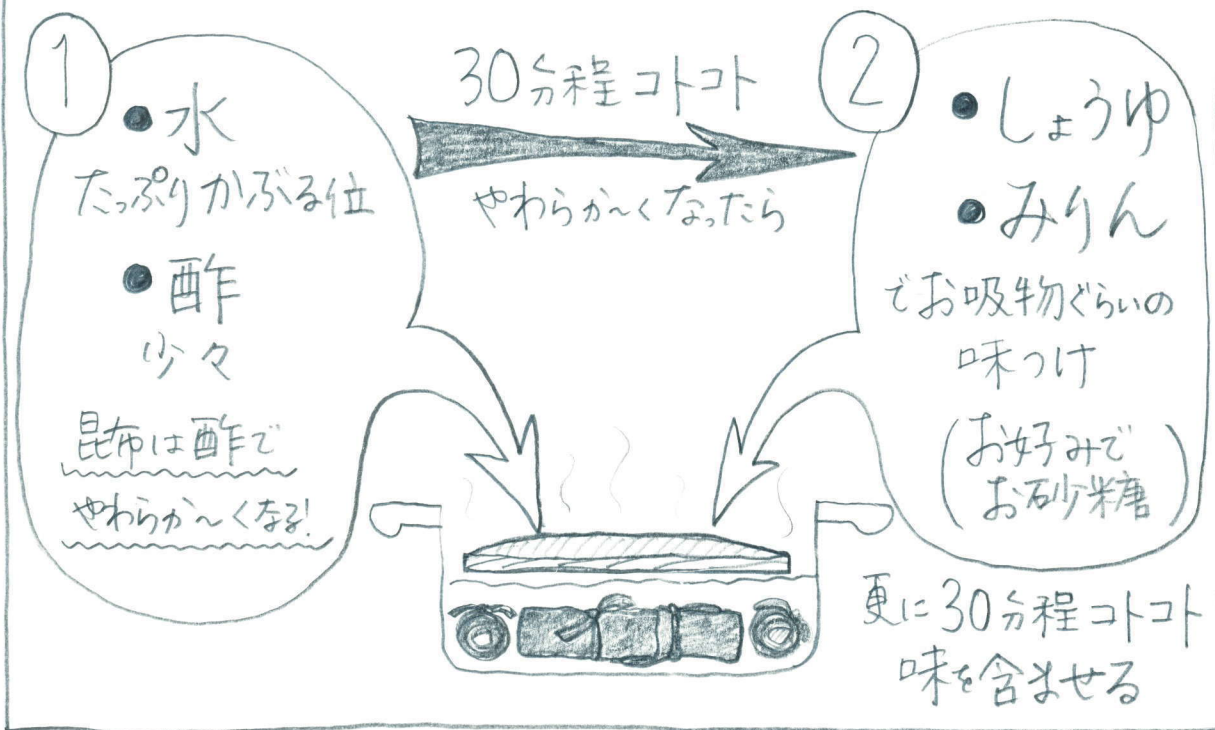 1
● 水
たっぷりかぶる位
● 酢
少々
昆布は酢で
やわらか〜くなる!
30分程コトコト
やわらか〜くなったら
2
● しょうゆ
● みりん
でお吸物ぐらいの
味つけ
(お好みで
お砂糖)
更に30分程コトコト
味を含ませる